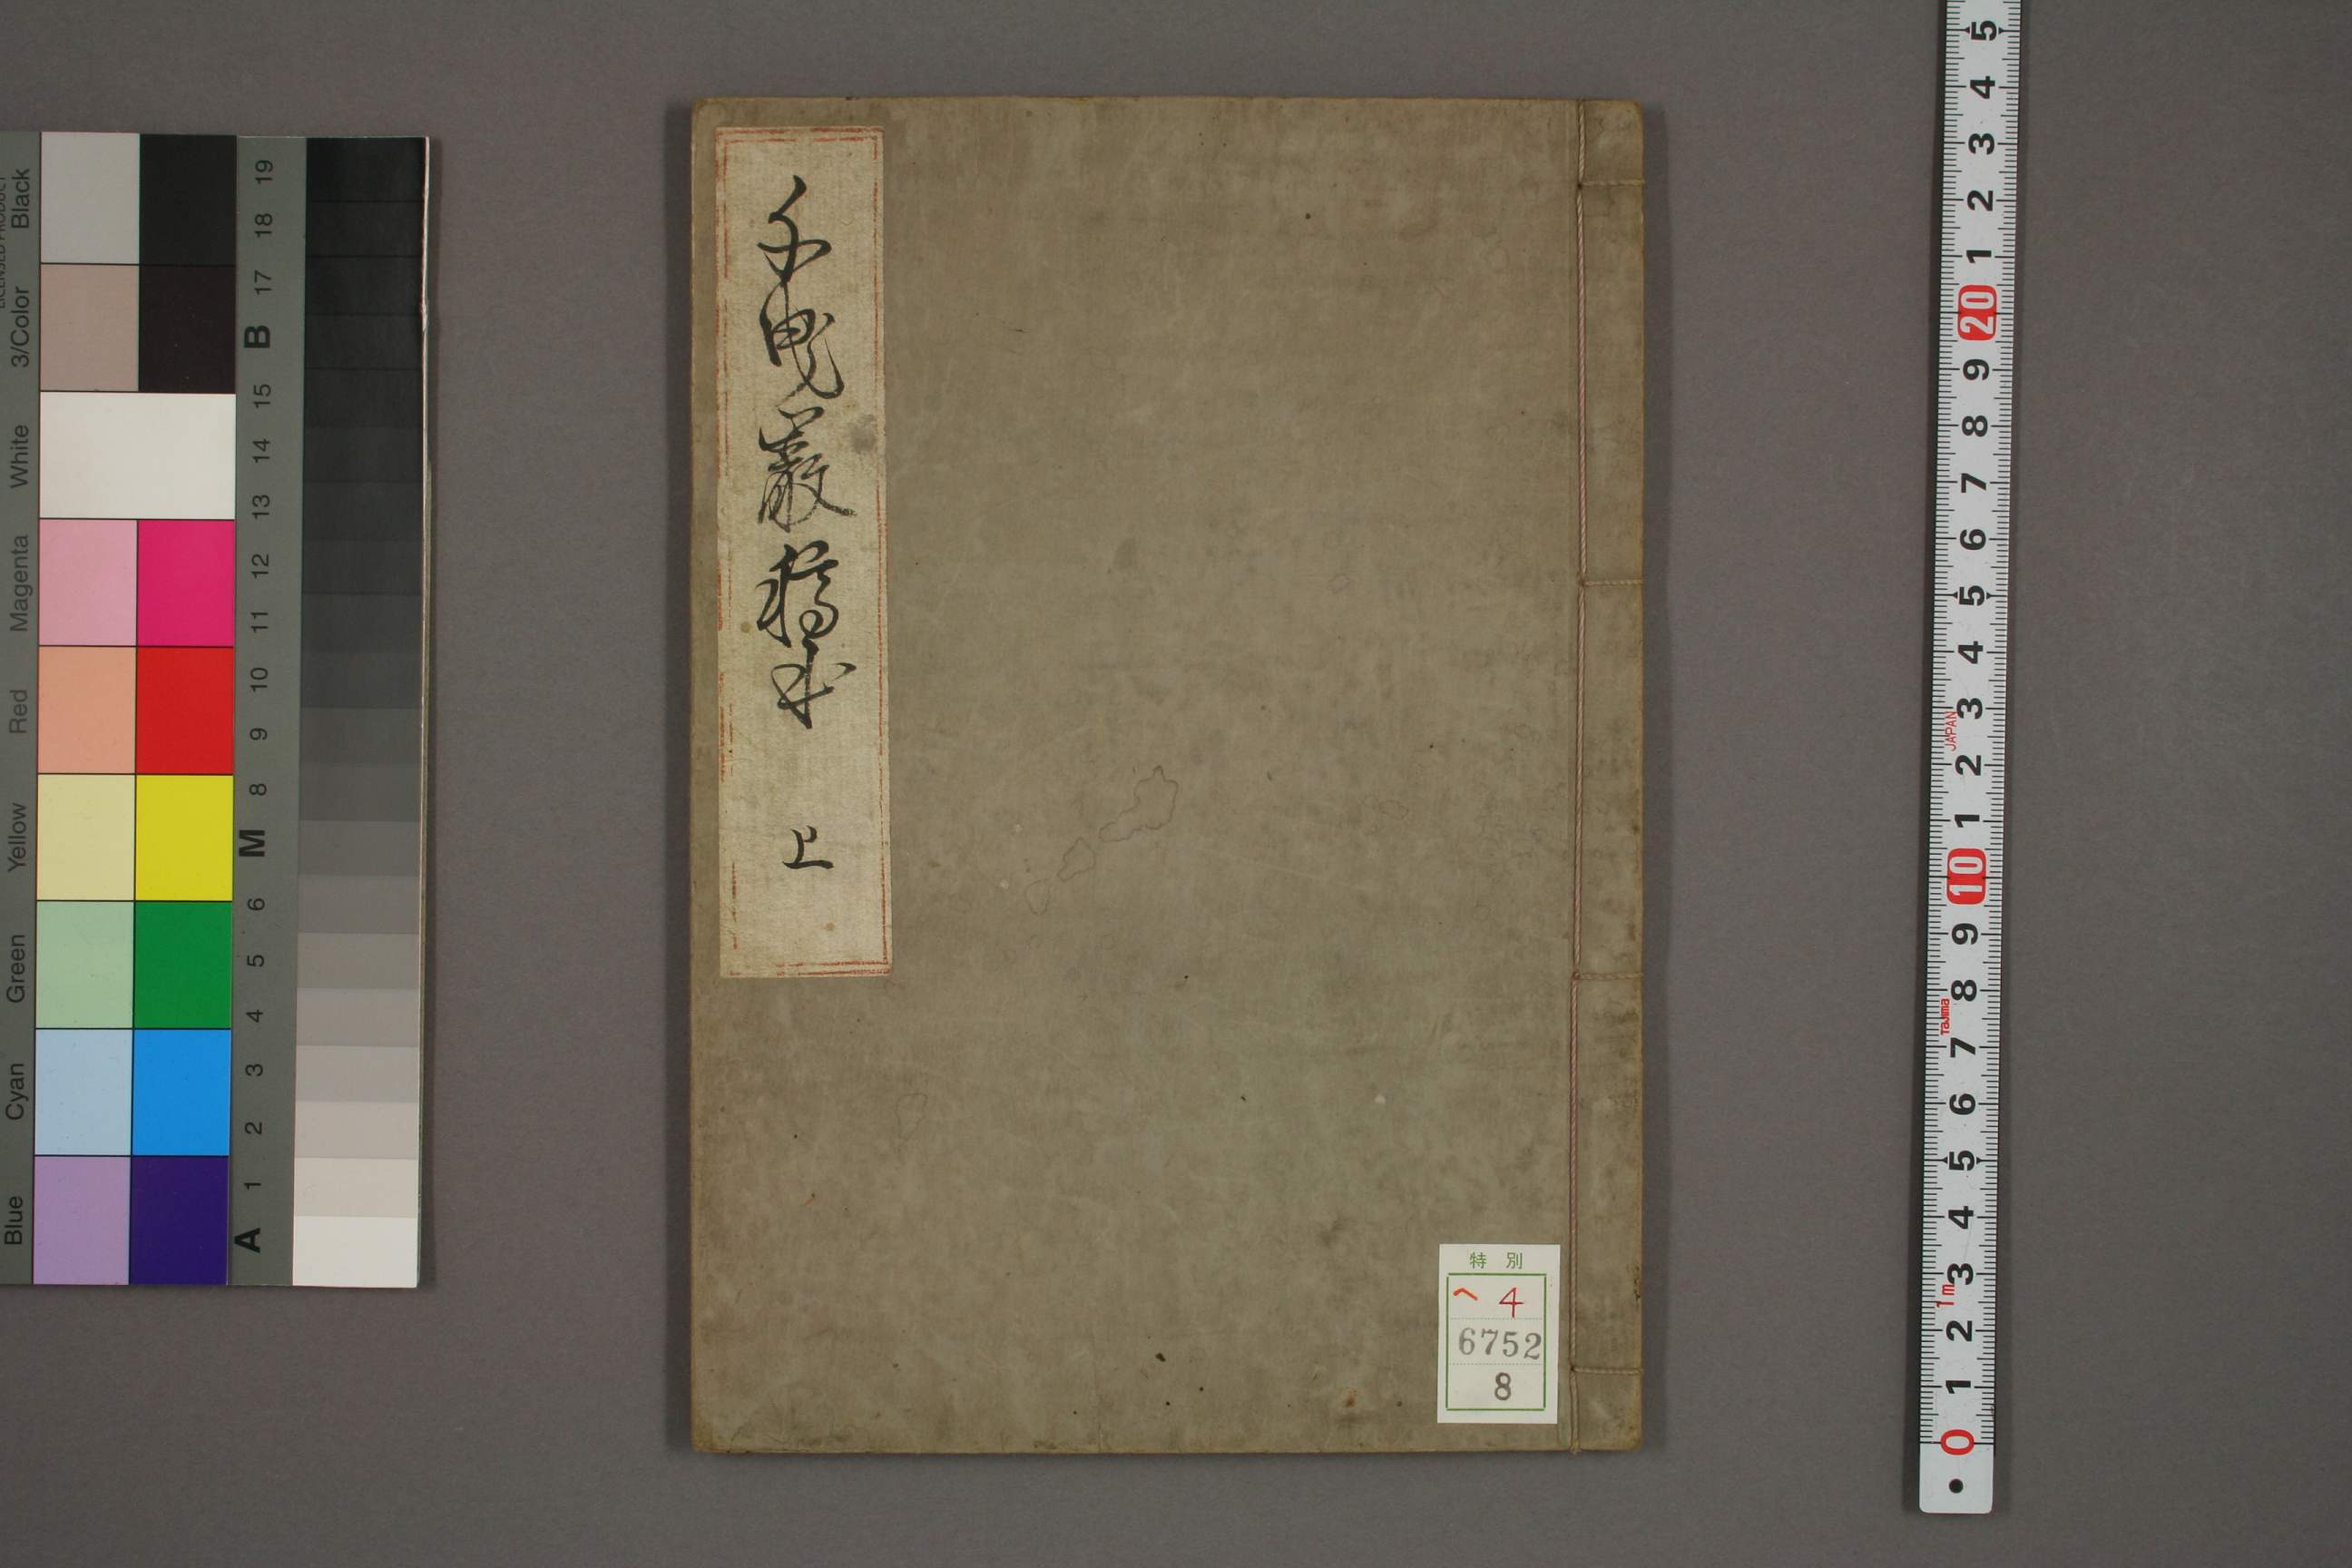 千曳巖稿本 上
特別
ヘ 4
6752
8
Black
3/Color
White
Magenta
Red
Yellow
Green
Cyan
Blue
A 1 2 3 4 5 6 M 8 9 10 11 12 13 14 15 B 17 18 19
0 1 2 3 4 5 6 7 8 9 10 1 2 3 4 5 6 7 8 9 20 1 2 3 4 5
1m
Tajima
JAPAN